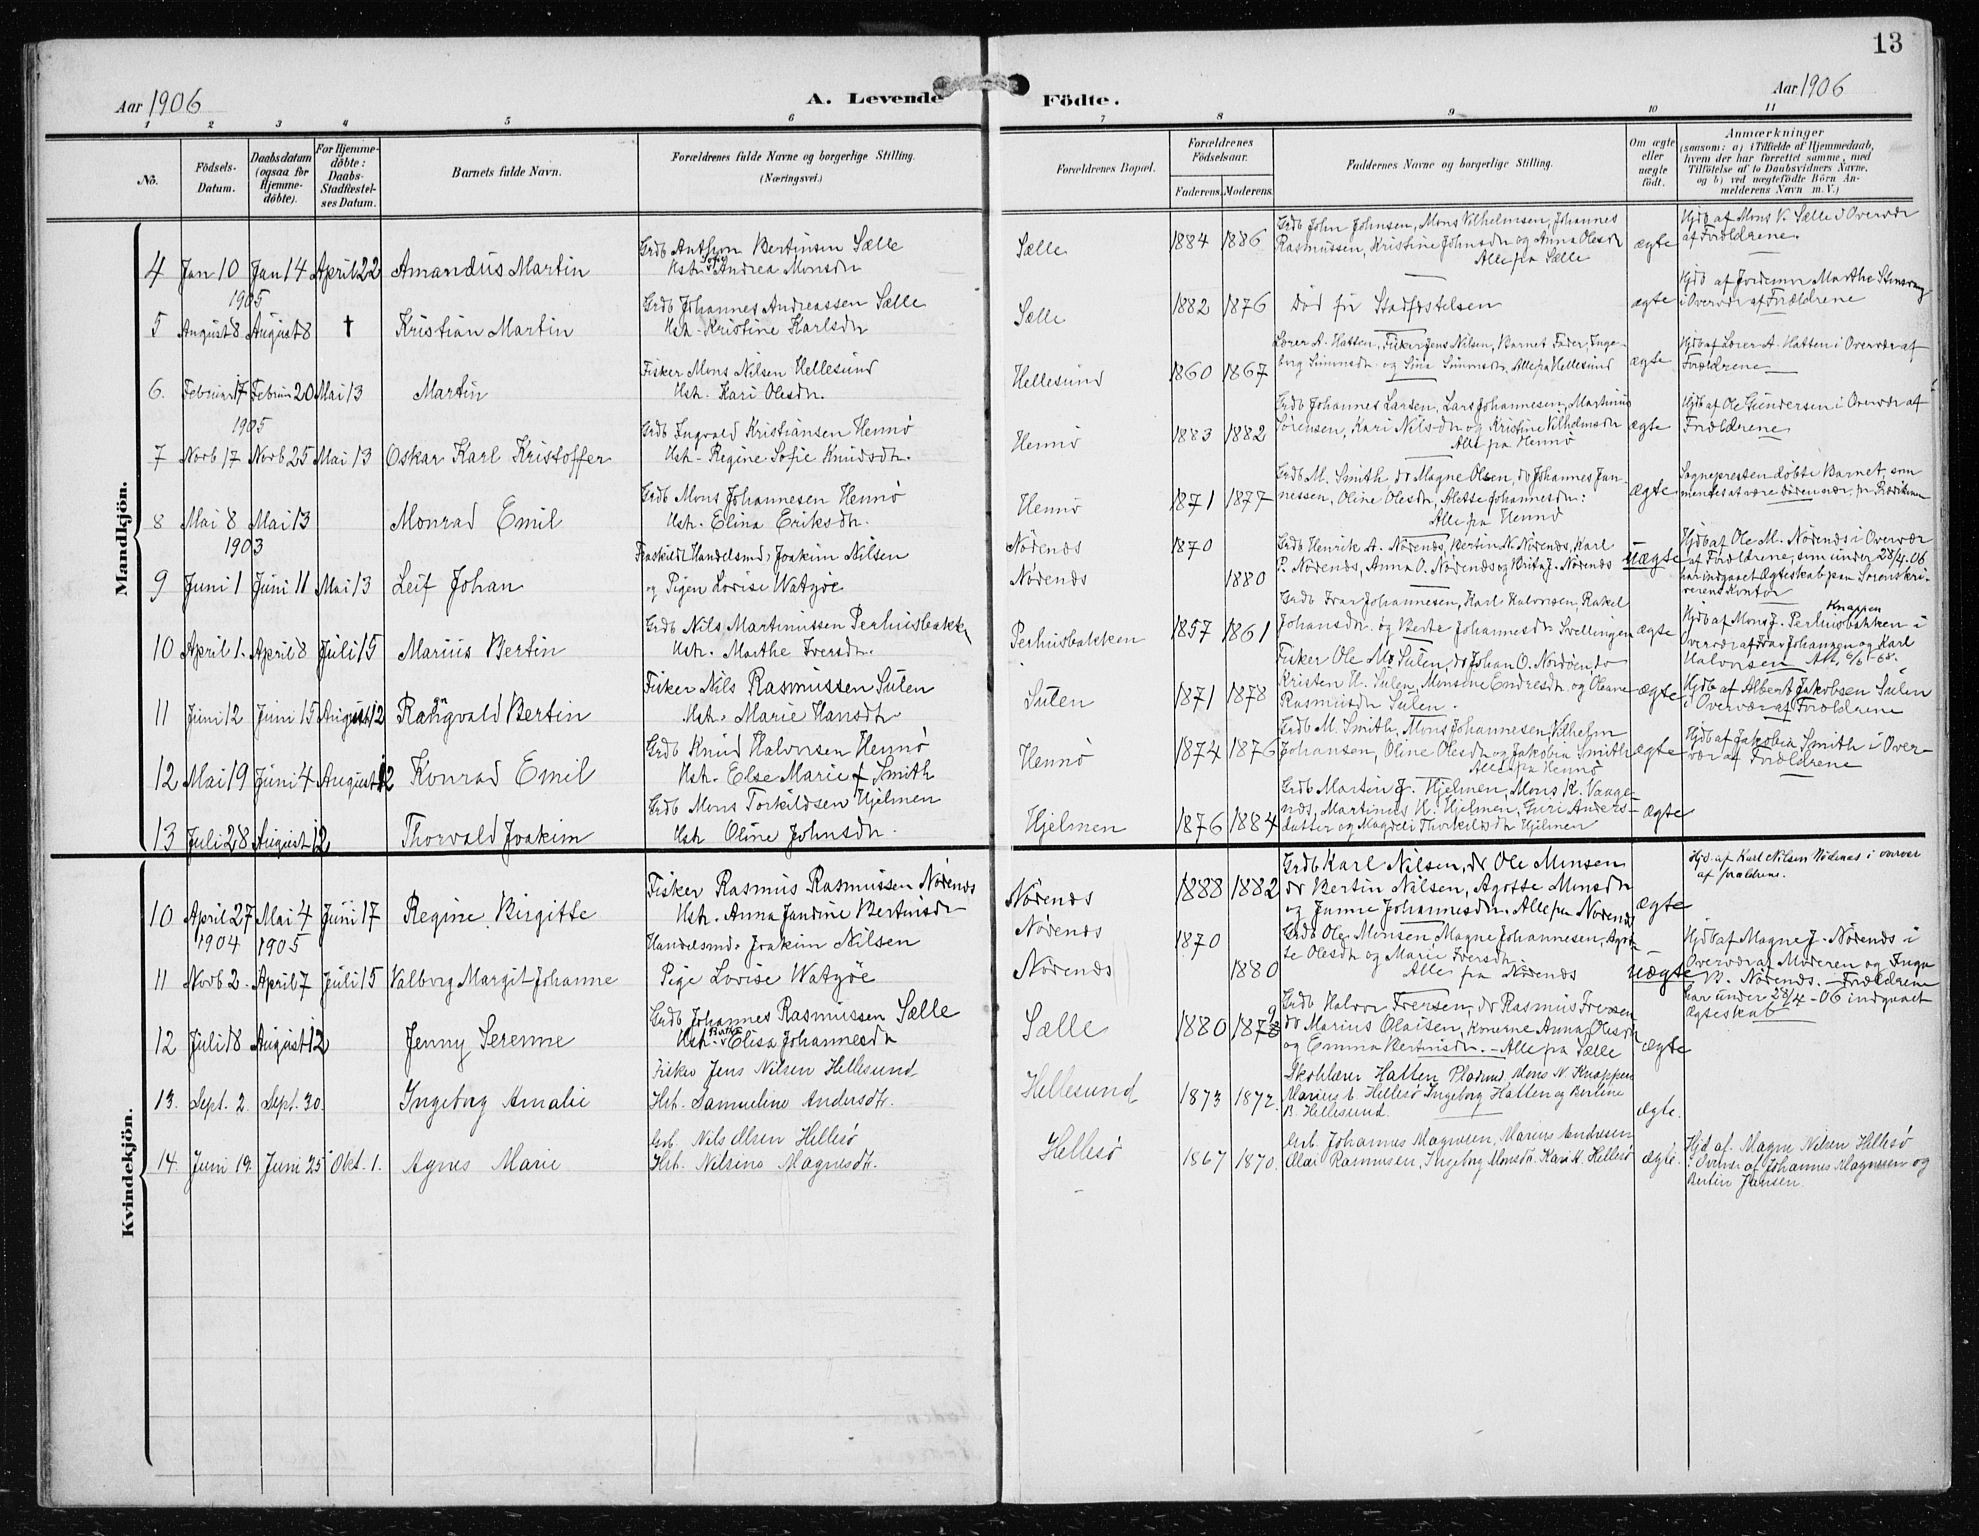 13
Aar 1906
A. Levende
Födte.
Aar 1906
1 2 3 4 5 6 7 8 9 10 11
No.
Födsels-
Datum.
Daabsdatum
(ogsaa for
Hjemme-
döbte).
For Hjemme-
döbte:
Daabs-
Stadfæstel-
ses Datum.
Barnets fulde Navn.
Forældrenes fulde Navne og borgerlige Stilling.
(Næringsvei.)
Forældrenes Bopæl.
Forældrenes
Födselsaar.
Faderens. Moderens.
Faddernes Navne og borgerlige Stilling.
Om ægte
eller
uægte
födt.
Anmærkninger
(saasom: a) i Tilfælde af Hjemmedaab,
hvem der har forrettet samme, med
Tilföielse af to Daabsvidners Navne,
og b) ved uægtefödte Börn An-
melderens Navn m. V.)
Mandkjön.
4 Jan 10 Jan 14 April 22 Amandus Martin
Grdb Anthon Bertinsen Sælle
Hstr. Sofie Andrea Monsdtr
Sælle 1884 1886
Grdb John Johnsen, Mons Vilhelmsen, Johannes
Rasmussen, Kristine Johnsdtr og Anna Olesdtr
Alle fra Sælle
ægte
Hjdb af Mons V. Sælle i Overvær
af Forældrene.
1905
5 August 8 August 8 † Kristian Martin
Grdb Johannes Andreassen Sælle
Hstr. Kristine Karlsdtr
Sælle 1882 1876
Död för Stadfæstelsen
ægte
Hjdb af Jordemor Marthe
i Overvær af Forældrene
6. Februar 17 Februar 20 Mai 13 Martin
Fisker Mons Nilsen Hellesund
Hstr. Kari Olesdtr.
Hellesund 1860 1867
Lærer A. Hatten, Fisker Jens Nilsen, Barnets Fader, Inge-
borg og Sina Alle fra Hellesund
ægte
Hjdb af Lærer A. Hatten i Overvær af
Forældrene
1905
7 Novb 17 Novb 25 Mai 13 Oskar Karl Kristoffer
Grdb Ingvald Kristiansen Hennö
Hstr. Regine Sofie Knudsdtr.
Hennö 1883 1882
Grdb Johannes Larsen, Lars Johannesen, Martinius
Sörensen, Kari Nilsdtr og Kristine Vilhelmsdtr
Alle fra Hennö
ægte
Hjdb af Ole Gundersen i Overvær af
Forældrene
8 Mai 8 Mai 13 Monrad Emil
Grdb Mons Johannesen Hennö
Hstr. Elina Eriksdtr.
Hennö 1871 1877
Grdb M. Smith do Magne Olsen, do Johannes Jan-
nessen, Oline Olesdtr, Alette Johannesdtr:
Alle fra Hennö
ægte.
Sognepresten döbte Barnet, som
mentes at være döden nær, fra Prædikestolen
1903
9 Juni 1 Juni 11 Mai 13 Leif Johan
Fraskildt Handelsmd. Joakim Nilsen
og Pigen Lovise Watzöe
Nörenæs 1870
Nörenæs 1880
Grdb Henrik A. Nörenæs, Bertin N. Nörenæs, Karl
P. Nörenæs, Anna O. Nörenæs og Brita J. Nörenæs
uægte
Hjdb af Ole M. Nörenæs i Overvær
af Forældrene, som under 28/4. 06
har indgaaet Ægteskab paa Sorenskri-
verens Kontor
10 April 1. April 8 Juli 15 Marius Bertin
Grdb Nils Martinussen Perhusbakk
Hstr. Marthe Iversdtr.
Perhusbakken 1857 1861
Grdb Ivar Johannesen, Karl Halvorsen, Rakel
Johansdtr. og Berte Johannesdtr Svellingen
ægte
Knappen
Hjdb af Mons J. Perhusbakken i
Overvær af Ivar Johannesen og Karl
Halvorsen 6/6-68.
11 Juni 12 Juni 15 August 12 Ragnvald Bertin
Fisker Nils Rasmussen Sulen
Hstr. Marie Hansdtr
Sulen 1871 1878
Fisker Ole M. Sulen, do Johan O. Nordöen, do
Kristen H. Sulen, Monsine Endresdtr og Oleane
Rasmusdtr Sulen.
ægte
Hjdb af Albert Jakobsen Sulen
i Overvær af Forældrene
12 Mai 19 Juni 4 August 12 Konrad Emil
Grdb Knud Halvorsen Hennö
Hstr. Else Marie f Smith
Hennö 1874 1876
Grdb M. Smith, Mons Johannesen, Vilhelm
Johansen, Oline Olesdtr og Jakobia Smith
Alle fra Hennö
ægte
Hjdb af Jakobia Smith i Over-
vær af Forældrene
13 Juli 28 August 12 Thorvald Joakim
Grdb Mons Torkildsen Hjelmen
Hstr Oline Johnsdtr.
Hjelmen 1876 1884
Grdb Martin J. Hjelmen, Mons K. Vaage-
næs, Martinus H. Hjelmen, Guri Anders-
datter og Magdeli Thorkildsdtr Hjelmen
ægte
Kvindekjön.
10 April 27 Mai 4 Juni 17 Regine Birgitte
Fisker Rasmus Rasmussen Nörenæs
Hstr. Anna Jandine Bertinsdtr
Nörenæs 1888 1882
Grdb Karl Nilsen, do Ole Monsen
do Bertin Nilsen, Agotte Monsdtr
og Janne Johannesdtr. Alle fra Nörenæs
ægte
Hjd. af Karl Nilsen Nödenæs i overvær
af forældrene.
1904 1905
11 Novb 2. April 7 Juli 15 Valborg Margit Johanne
Handelsmd. Joakim Nilsen
Pige Lovise Watzöe
Nörenæs 1870
Nörenæs 1880
Grdb Ole Monsen, Magne Johannesen, Agot-
te Olesdtr og Marie Iversdtr.
Alle fra Nörenæs
uægte
Hjdb af Magne J. Nörenæs i
Overvær af Moderen og Inga
B. Nörenæs. – Forældrene
har under 28/4 - 06 indgaaet
Ægteskab
12 Juli 8 August 12 Jenny Serenne
Grdb Johannes Rasmussen Sælle
Hstr. Elisa Johannesdtr
Sælle 1880 1879
Grdb Halvor Iversen, do Rasmus Iversen
do Marius Olaisen, Konerne Anna Olesdtr
og Emma Bertinsdtr. – Alle fra Sælle
ægte
13. Sept. 2. Sept. 30. Ingeborg Amalie
Fisker Jens Nilsen Hellesund
Hst. Samueline Andersdtr.
Hellesund 1873 1872.
Skolelærer Hatten, Mons N. Knappen
Marius E. Hellesö Ingeborg Hatten og Berline
B. Hellesund.
ægte.
14. Juni 19. Juni 25 Okt. 1. Agnes Marie
Grb. Nils Olsen Hellesö
Hst. Nilsine Magnesdtr.
Hellesö 1867 1870.
Grb. Johannes Magnesen, Marius Endresen
Olai Rasmussen, Ingeborg Monsdtr. Kari H. Hellesö
ægte.
Hjd. af. Magne Nilsen Hellesö
i Overvær af Johannes Magnesen og
Bertin Jansen.